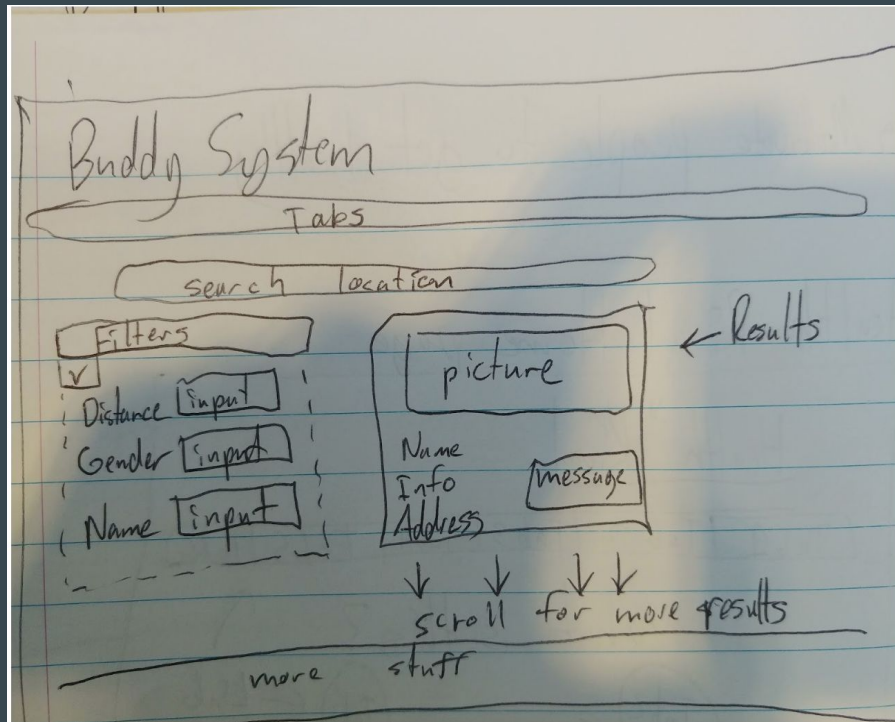 Buddy System
Tabs
search location
Filters
V
Distance input
Gender input
Name input
picture
Name
Info
Address
message
← Results
↓ ↓ ↓ ↓
scroll for more results
more stuff